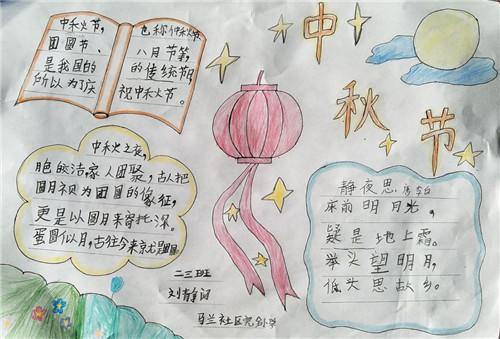 中秋节
中秋火节,
团圆节、
是我国的
所以为了庆
也称仲秋节
八月节等,
的传统节
祝中秋节。
中秋火之夜,
皎洁,家人团聚,古人把
圆月视为团圆的象征,
更是以圆月来寄托深。
蛋圆似月,古往今来
静夜思 李白
床前明月光,
疑是地上霜。
举头望明月,
低头思故乡。
二三班
刘静
马兰社区完全小学